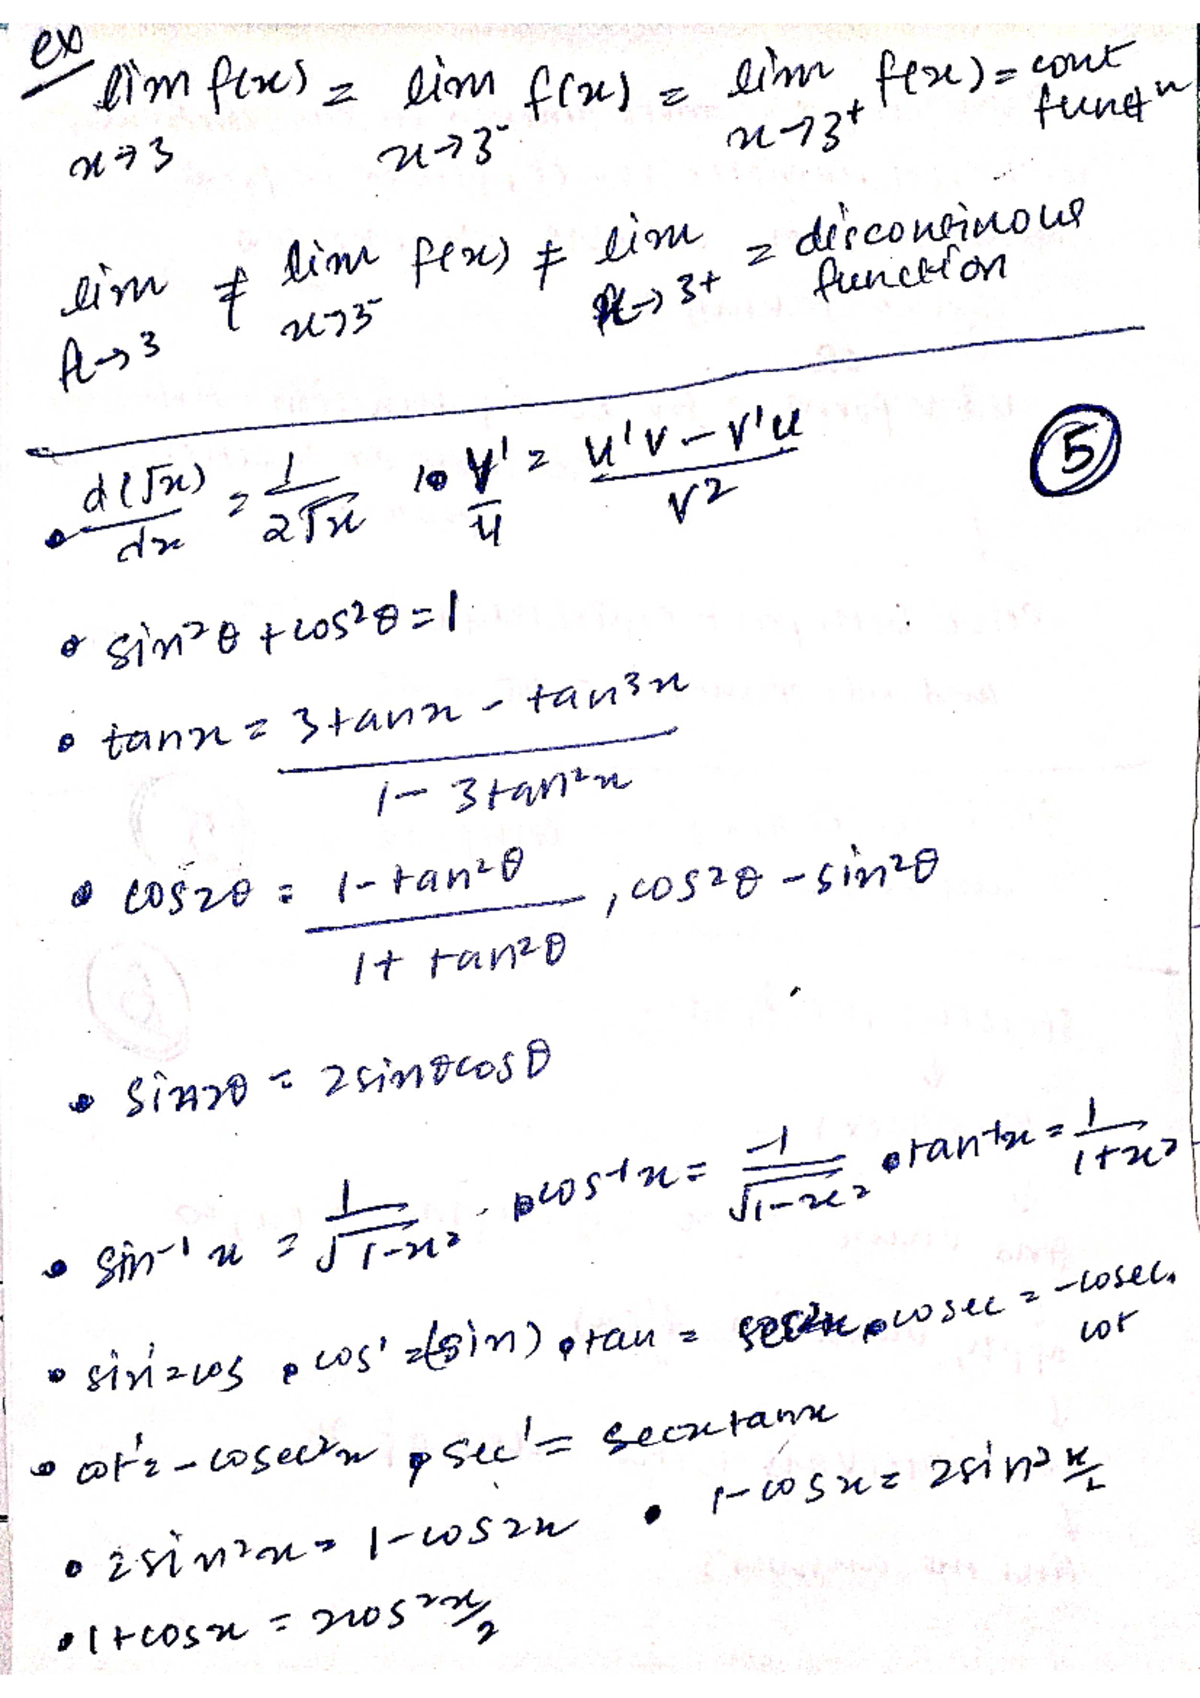 ex
lim f(x) = lim f(x) = lim f(x) = cont
x→3 x→3⁻ x→3⁺ functⁿ
lim ≠ lim f(x) ≠ lim = discontinous
x→3 x→3⁻ x→3⁺ function
• d(√x)/dx = 1/2√x • V'/u = u'v - v'u / v² 5
• sin²θ + cos²θ = 1
• tanx = 3tanx - tan³x / 1 - 3tan²x
• cos2θ = 1 - tan²θ / 1 + tan²θ , cos2θ - sin²θ
• Sin2θ = 2sinθcosθ
• Sin⁻¹x = 1/√1-x² • cos⁻¹x = -1/√1-x² • tan⁻¹x = 1/1+x²
• sin' = cos • cos' = (sin) • tan = • cosec = -cosec. cot
• cot' = -cosec²x • sec' = secxtanx
• 2sin²x = 1-cos2x • 1-cosx = 2sin²x/2
• 1+cosx = 2cos²x/2